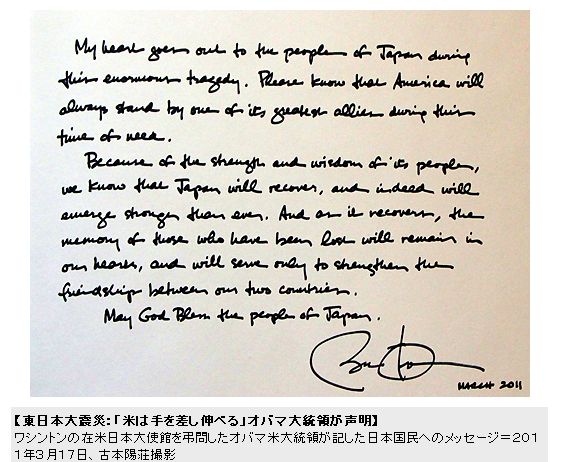 My heart goes out to the people of Japan during
this enormous tragedy. Please know that America will
always stand by one of its greatest allies during this
time of need.
Because of the strength and wisdom of its people,
we know that Japan will recover, and indeed will
emerge stronger than ever. And as it recovers, the
memory of those who have been lost will remain in
our hearts, and will serve only to strengthen the
friendship between our two countries.
May God Bless the people of Japan.
MARCH 2011
【東日本大震災:「米は手を差し伸べる」オバマ大統領が声明】
ワシントンの在米日本大使館を弔問したオバマ米大統領が記した日本国民へのメッセージ=201
1年3月17日、古本陽荘撮影